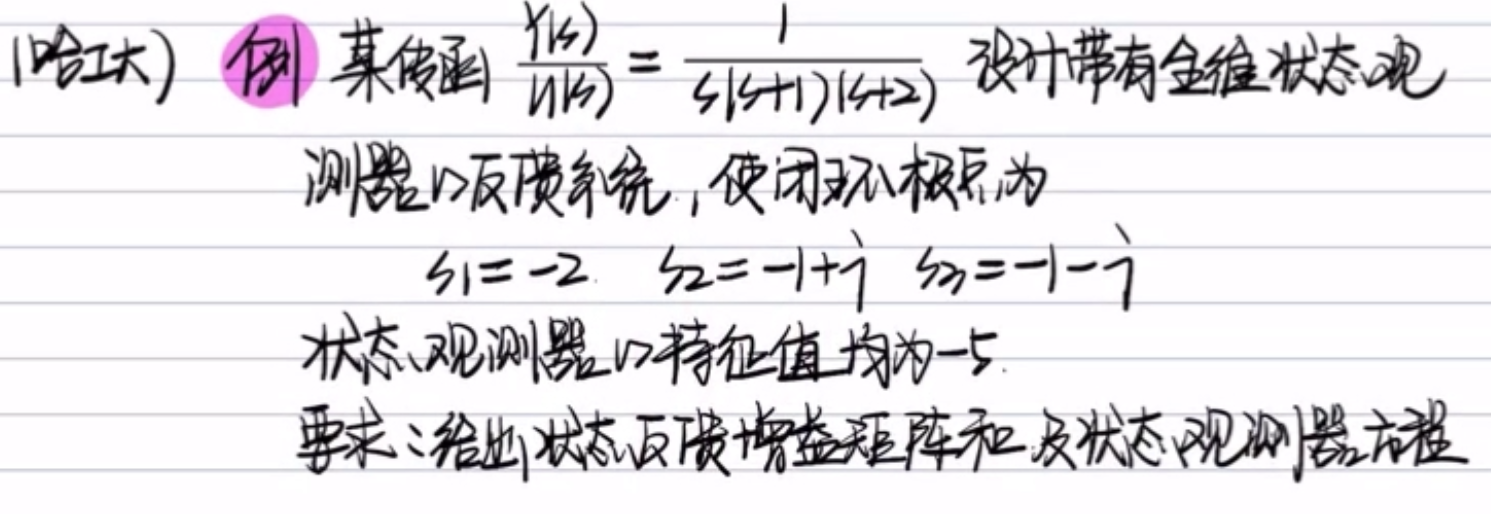 (哈工大) 例 某传函 Y(s)/U(s) = 1/(s(s+1)(s+2)) 设计带有全维状态观
测器的反馈系统,使闭环极点为
s1=-2. s2=-1+j s3=-1-j
状态观测器的特征值均为-5.
要求:给出状态反馈增益矩阵和及状态观测器方程